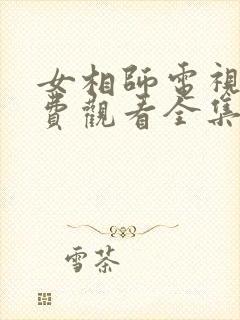 女相師電視
費觀看全集
雪茶